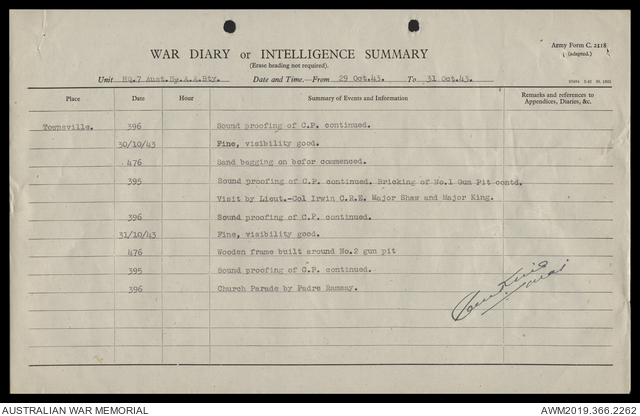 Army Form C. 2118
(adapted.)
WAR DIARY or INTELLIGENCE SUMMARY
(Erase heading not required).
Unit HQ.7 Aust.Hy.A.A.Bty. Date and Time.—From 29 Oct.43. To 31 Oct.43.
Place Date Hour Summary of Events and Information Remarks and references to Appendices, Diaries, &c.
Townsville. 396 Sound proofing of C.P. continued.
30/10/43 Fine, visibility good.
476 Sand bagging on befor commenced.
395 Sound proofing of C.P. continued. Bricking of No.1 Gum Pit contd.
Visit by Lieut.-Col Irwin C.R.E. Major Shaw and Major King.
396 Sound proofing of C.P. continued.
31/10/43 Fine, visibility good.
476 Wooden frame built around No.2 gun pit
395 Sound proofing of C.P. continued.
396 Church Parade by Padre Ramsay.
AUSTRALIAN WAR MEMORIAL
AWM2019.366.2262